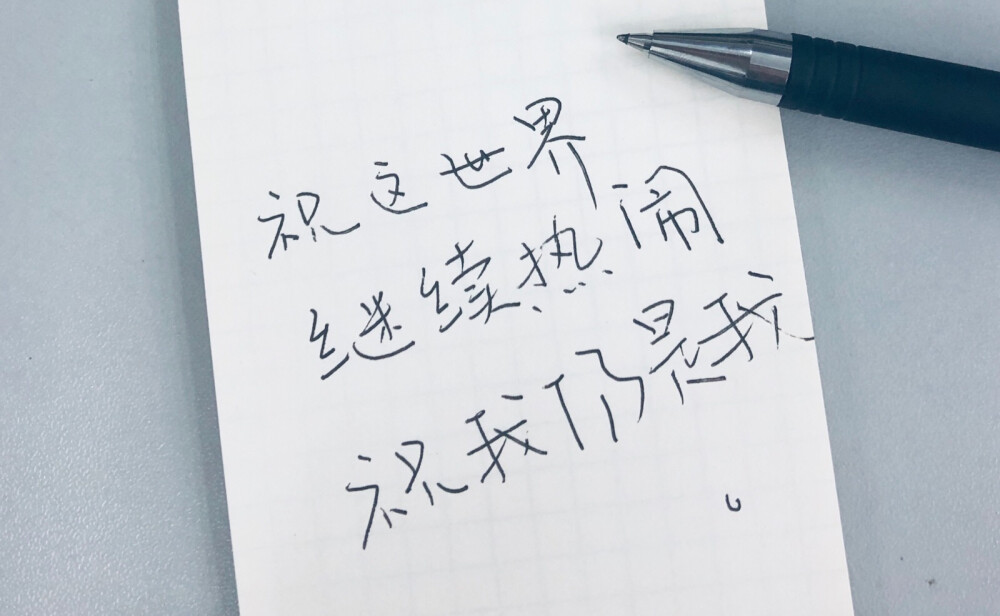 祝这世界
继续热闹
祝我仍是我
。